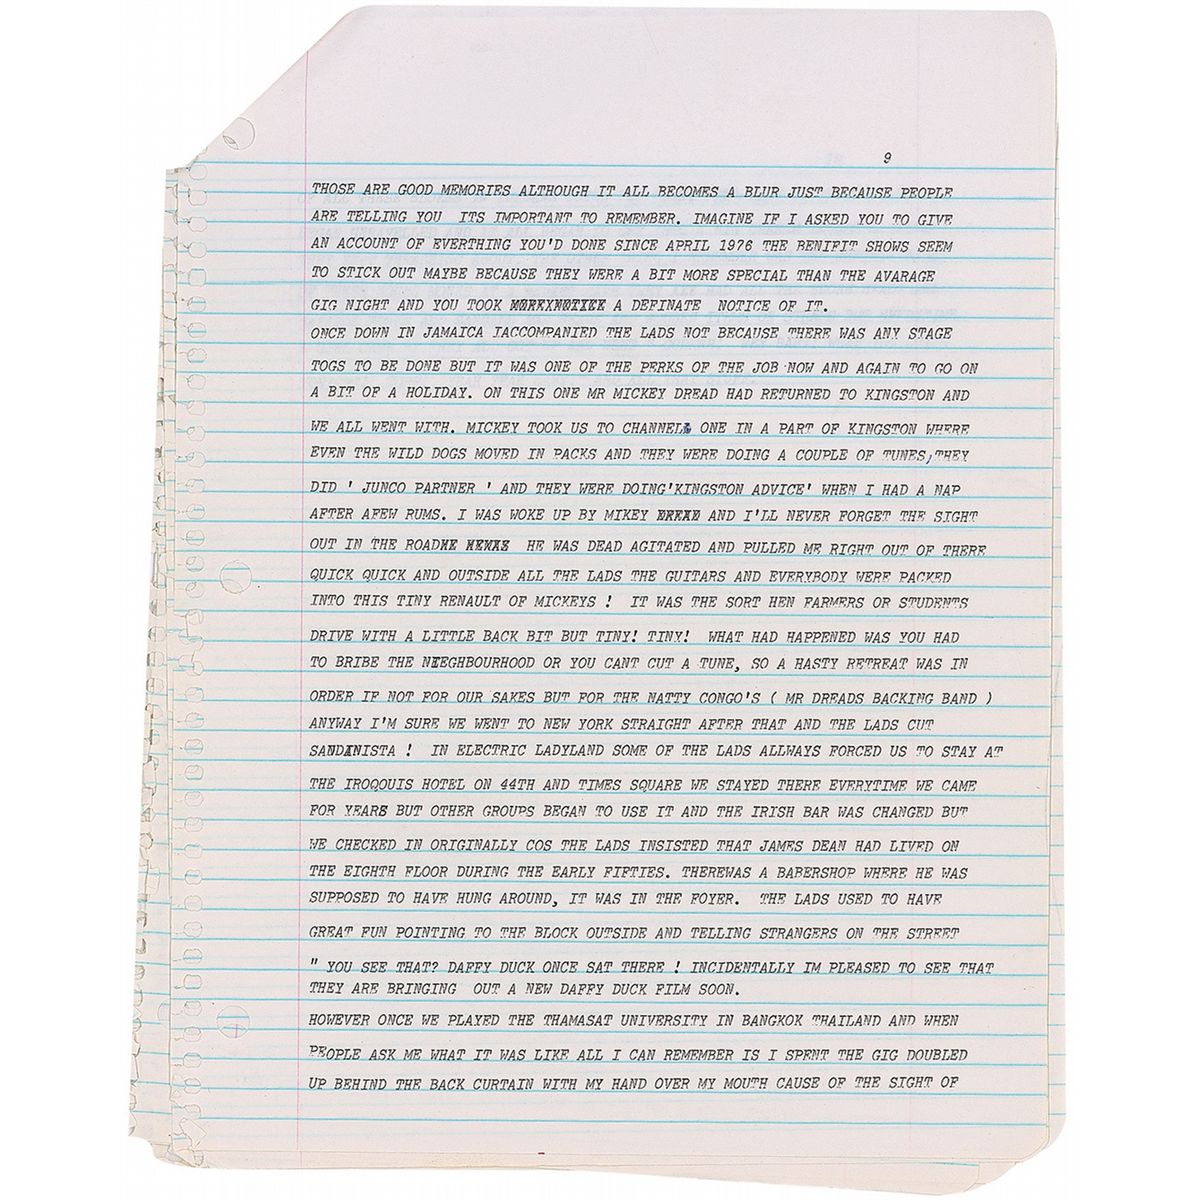 9
THOSE ARE GOOD MEMORIES ALTHOUGH IT ALL BECOMES A BLUR JUST BECAUSE PEOPLE
ARE TELLING YOU ITS IMPORTANT TO REMEMBER. IMAGINE IF I ASKED YOU TO GIVE
AN ACCOUNT OF EVERTHING YOU'D DONE SINCE APRIL 1976 THE BENIFIT SHOWS SEEM
TO STICK OUT MAYBE BECAUSE THEY WERE A BIT MORE SPECIAL THAN THE AVARAGE
GIG NIGHT AND YOU TOOK A DEFINATE NOTICE OF IT.
ONCE DOWN IN JAMAICA IACCOMPANIED THE LADS NOT BECAUSE THERE WAS ANY STAGE
TOGS TO BE DONE BUT IT WAS ONE OF THE PERKS OF THE JOB NOW AND AGAIN TO GO ON
A BIT OF A HOLIDAY. ON THIS ONE MR MICKEY DREAD HAD RETURNED TO KINGSTON AND
WE ALL WENT WITH. MICKEY TOOK US TO CHANNEL ONE IN A PART OF KINGSTON WHERE
EVEN THE WILD DOGS MOVED IN PACKS AND THEY WERE DOING A COUPLE OF TUNES, THEY
DID ' JUNCO PARTNER ' AND THEY WERE DOING'KINGSTON ADVICE' WHEN I HAD A NAP
AFTER AFEW RUMS. I WAS WOKE UP BY MIKEY AND I'LL NEVER FORGET THE SIGHT
OUT IN THE ROAD HE WAS DEAD AGITATED AND PULLED ME RIGHT OUT OF THERE
QUICK QUICK AND OUTSIDE ALL THE LADS THE GUITARS AND EVERYBODY WERE PACKED
INTO THIS TINY RENAULT OF MICKEYS ! IT WAS THE SORT HEN FARMERS OR STUDENTS
DRIVE WITH A LITTLE BACK BIT BUT TINY! TINY! WHAT HAD HAPPENED WAS YOU HAD
TO BRIBE THE NEEGHBOURHOOD OR YOU CANT CUT A TUNE, SO A HASTY RETREAT WAS IN
ORDER IF NOT FOR OUR SAKES BUT FOR THE NATTY CONGO'S ( MR DREADS BACKING BAND )
ANYWAY I'M SURE WE WENT TO NEW YORK STRAIGHT AFTER THAT AND THE LADS CUT
SANDANISTA ! IN ELECTRIC LADYLAND SOME OF THE LADS ALLWAYS FORCED US TO STAY AT
THE IROQOUIS HOTEL ON 44TH AND TIMES SQUARE WE STAYED THERE EVERYTIME WE CAME
FOR YEARS BUT OTHER GROUPS BEGAN TO USE IT AND THE IRISH BAR WAS CHANGED BUT
WE CHECKED IN ORIGINALLY COS THE LADS INSISTED THAT JAMES DEAN HAD LIVED ON
THE EIGHTH FLOOR DURING THE EARLY FIFTIES. THEREWAS A BABERSHOP WHERE HE WAS
SUPPOSED TO HAVE HUNG AROUND, IT WAS IN THE FOYER. THE LADS USED TO HAVE
GREAT FUN POINTING TO THE BLOCK OUTSIDE AND TELLING STRANGERS ON THE STREET
" YOU SEE THAT? DAFFY DUCK ONCE SAT THERE ! INCIDENTALLY IM PLEASED TO SEE THAT
THEY ARE BRINGING OUT A NEW DAFFY DUCK FILM SOON.
HOWEVER ONCE WE PLAYED THE THAMASAT UNIVERSITY IN BANGKOK THAILAND AND WHEN
PEOPLE ASK ME WHAT IT WAS LIKE ALL I CAN REMEMBER IS I SPENT THE GIG DOUBLED
UP BEHIND THE BACK CURTAIN WITH MY HAND OVER MY MOUTH CAUSE OF THE SIGHT OF